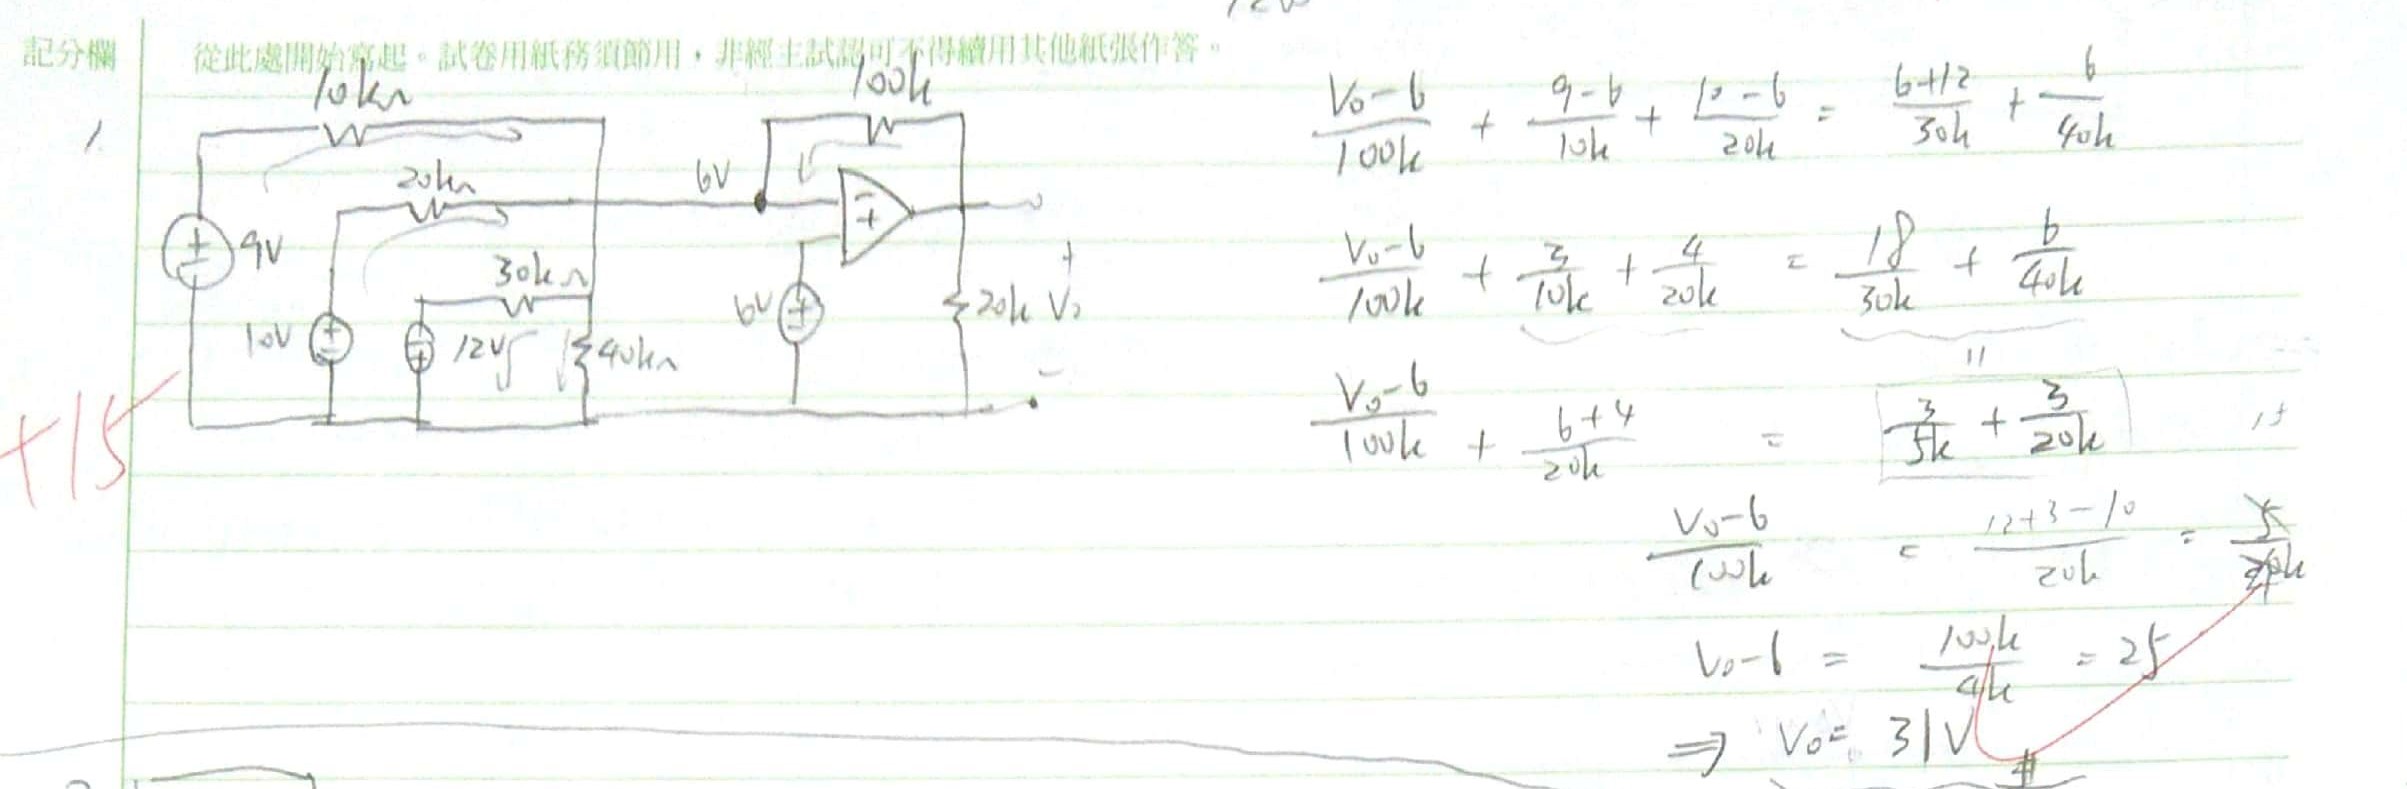 記分欄 從此處開始寫起。試卷用紙務須節用，非經主試認可不得續用其他紙張作答。
1.
10kΩ
100k
20kΩ
6V
9V
30kΩ
10V
12V
40kΩ
6V
20k
+
Vo
-
+15
(Vo-6)/100k + (9-6)/10k + (10-6)/20k = (6+12)/30k + 6/40k
(Vo-6)/100k + 3/10k + 4/20k = 18/30k + 6/40k
(Vo-6)/100k + (6+4)/20k = 3/5k + 3/20k
(Vo-6)/100k = (12+3-10)/20k = 5/20k
Vo-6 = 100k/4k = 25
⇒ Vo = 31V #